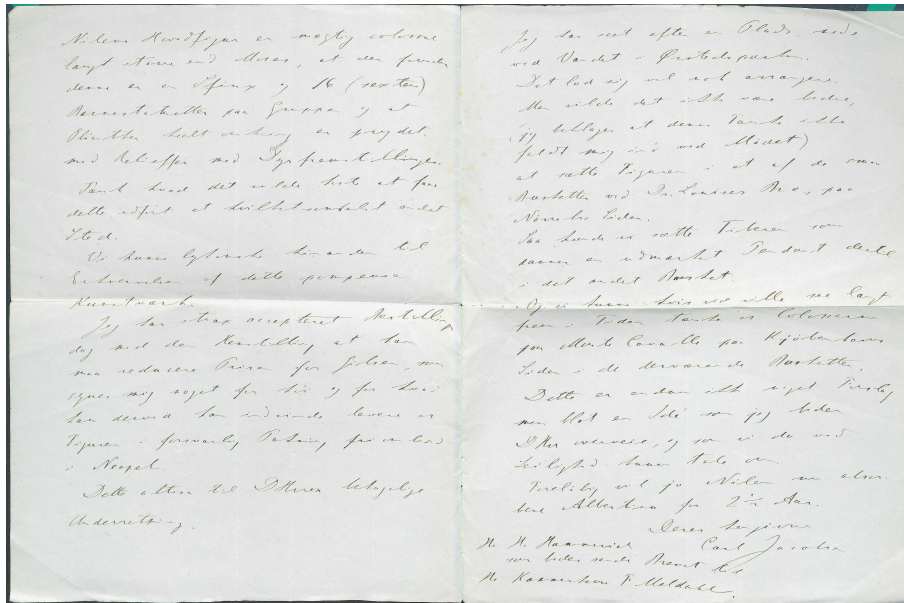 Nilens Hovedfigur er mægtig colossal
langt større end Moses, at den foruden
denne er en Sfinx og 16 (sexten)
Barnestatuetter paa Gruppen og at
Plinthen helt omkring er prydet
med Relieffer med Dyrfremstillinger.
Tænk hvad det vilde koste at faae
dette udført et hvilketsomhelst andet
Sted.
Vi kunne lykønske hinanden til
Erhvervelsen af dette pompeuse
Kunstværk.
Jeg har strax accepteret
dog med den Henstilling at han
maa reducere Prisen for Gibsen, som
synes mig noget for høi og for hvad
han derved kan indvinde levere os
Figuren i forsvarlig Pakning frit om bord
i Neapel.
Dette altsaa til DHrrer behagelige
Underretning.
Jeg har seet efter en Plads, nede
ved Vandet i Ørstedsparken.
Det lod sig vel nok arrangere.
Men vilde det ikke være bedre,
(jeg beklager at denne Tanke ikke
faldt mig ind ved Mødet)
at sætte Figuren i et af de smaa
Bosketter ved Dr. Louises Bro, paa
Nørrebro Siden.
Saa kunde vi sætte Tiberen som
danner en udmærket Pendant dertil
i det andet Bosket.
Og vi kunne - hvis vi ville see langt
frem i Tiden tænke os Colosserne
paa Monte Cavallo paa Kjøbenhavns
Siden i de derværende Bosketter.
Dette er endnu ikke noget Forslag
men blot en Idé som jeg beder
DHrr overveie, og som vi da ved
Leilighed kunne tale om.
Foreløbig vil jo Nilen
Albertina for 2½ Aar.
Deres hengivne
Carl Jacobsen
Hr. H. Hammerich
som bedes sende Brevet til
Hr. Kammerherre F. Meldahl.